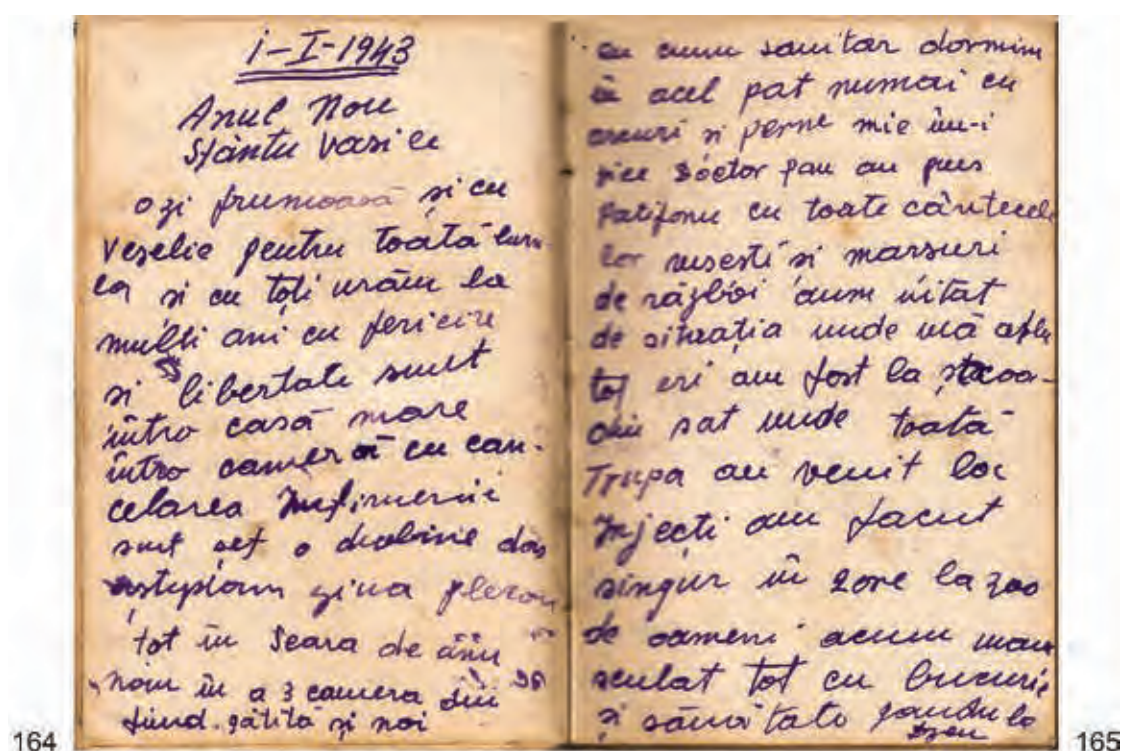 1-I-1943
Anul Nou
Sfântu Vasile
o zi frumoasă și cu
Veselie pentru toată lum
ea și cu toți urăm la
mulți ani cu fericire
și libertate sunt
intro casă mare
intro cameră cu can-
celarea Infirmerii
sunt șef o duc bine dar
așteptam ziua plecări
tot in Seara de ănu
nou in a 3 camera din
fiind gătită și noi
cu unu sanitar dormim
in acel pat numai cu
arcuri și perne mie im-i
zice Doctor sau au pus
Patifonu cu toate cântecele
lor rusesti si marsuri
de război aum uitat
de situația unde mă aflu
tot eri am fost la
sat unde toată
Trupa au venit loc
Injecti am facut
singur in 2 ore la 300
de oameni acum mau
sculat tot cu bucurie
și sănătate gandu la
Dzeu
164
165